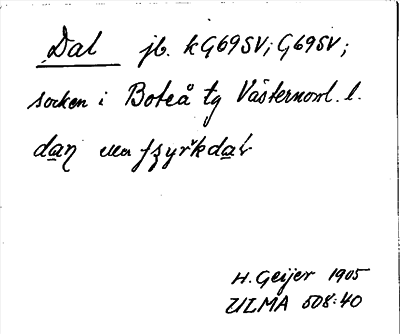 Dal jb. kG69SV; G69SV;
socken i Boteå tg Västernorrl. l.
daṉ eller fʒyrkdaḻ
H. Geijer 1905
ULMA 508:40